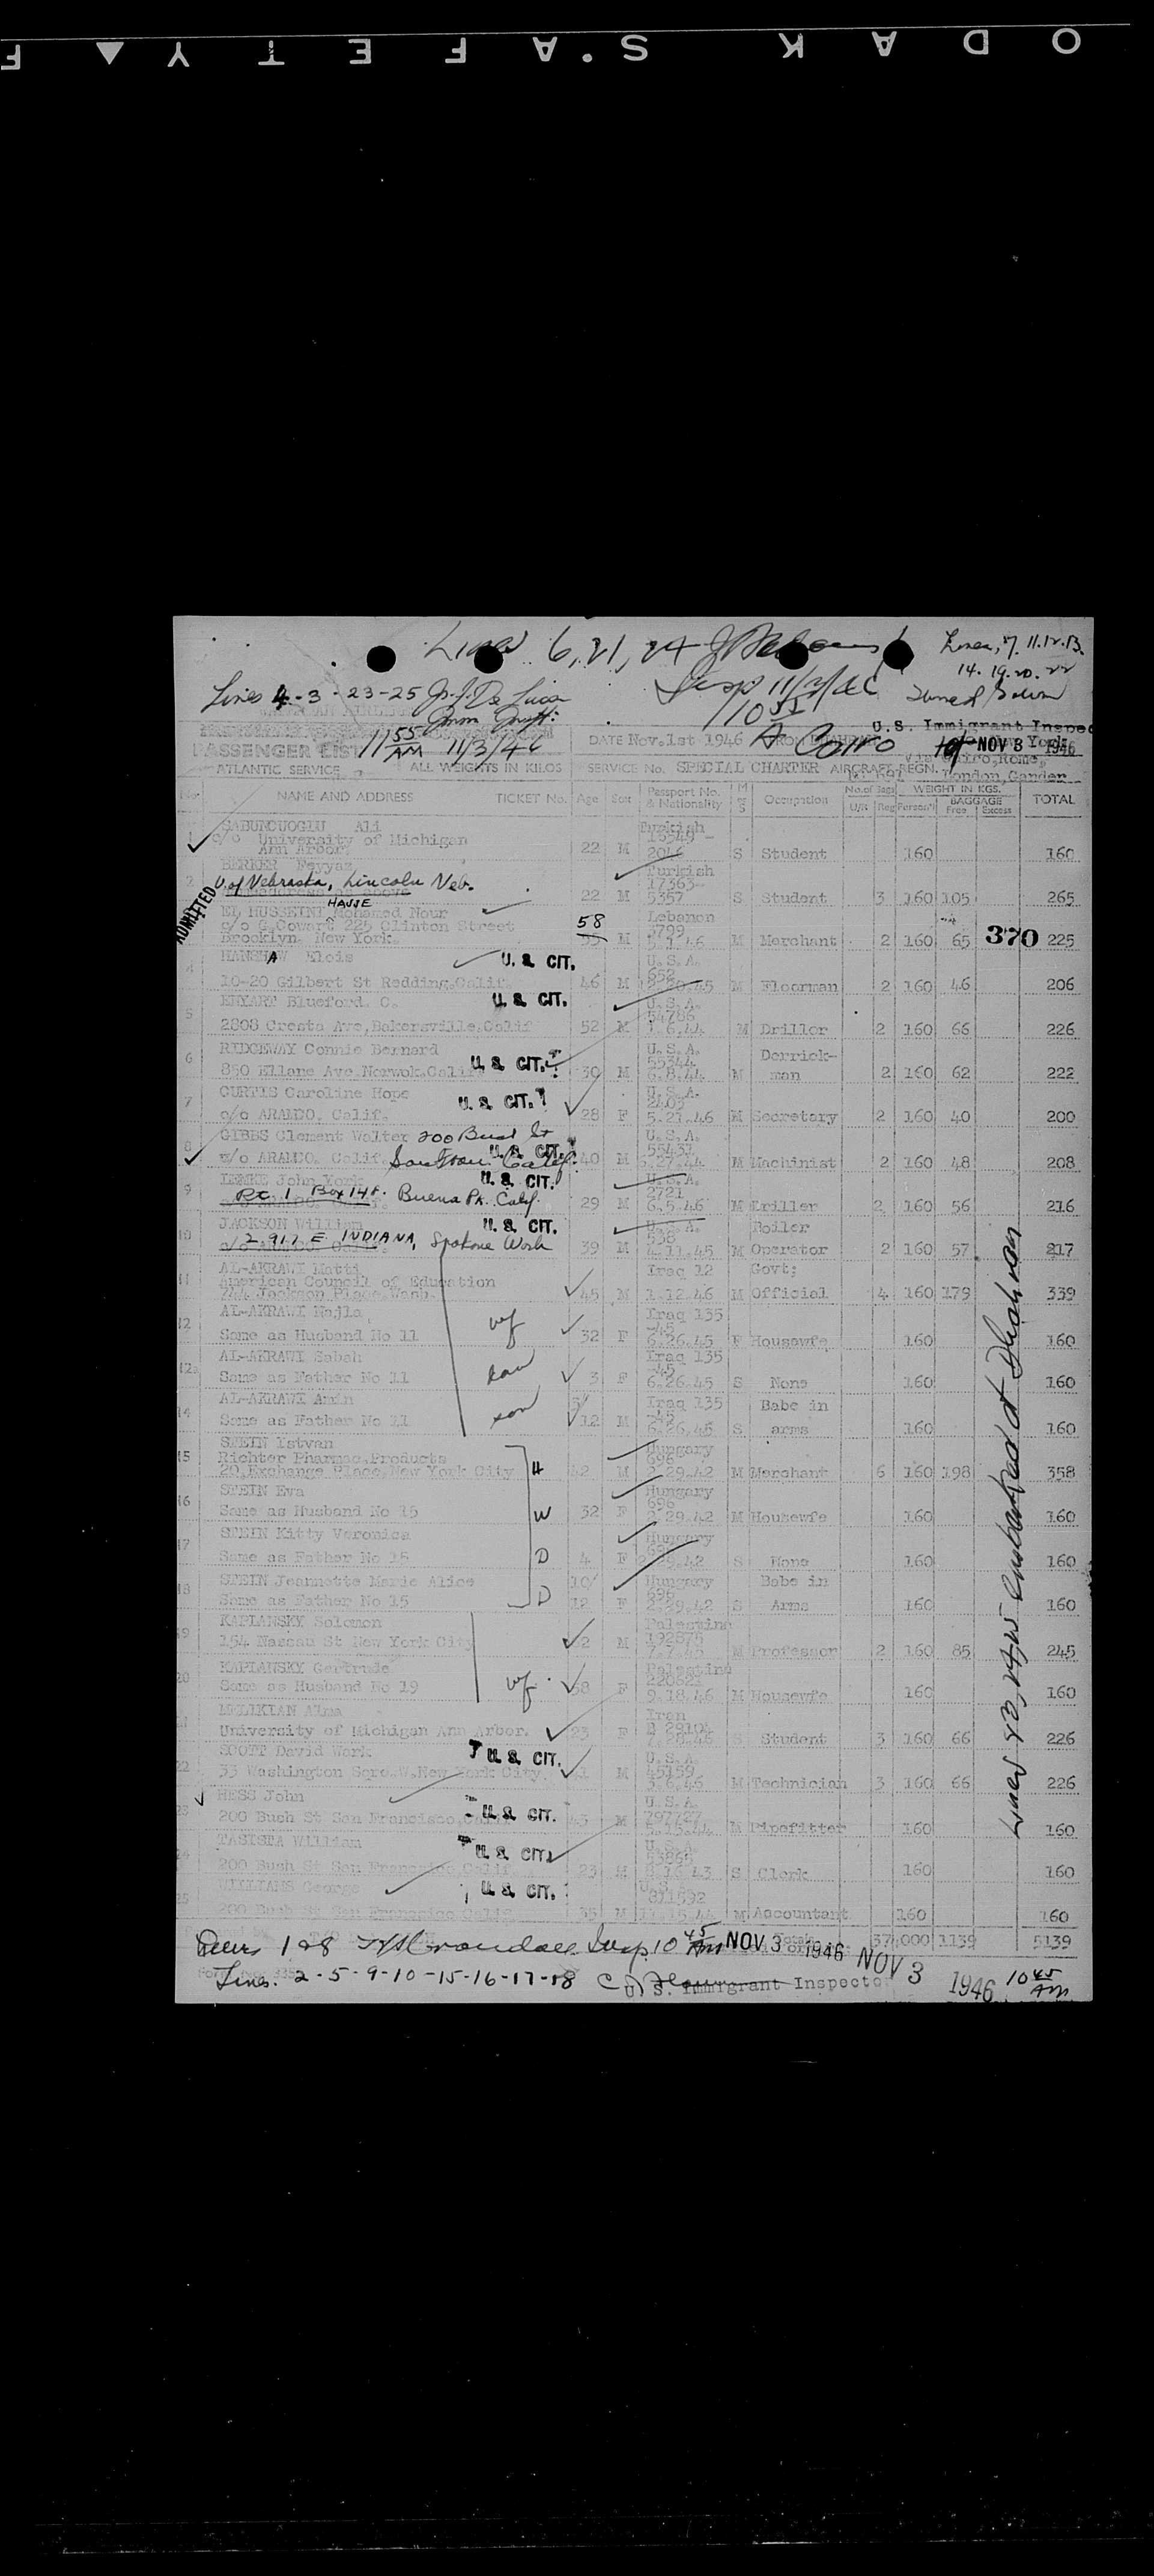 ODAK S'AFETY F
Lines 6, 21, 24
Lines 7. 11. 12. 13.
14. 19. 20. 22
Lines 4 - 3 - 23 - 25
Insp 11/3/46
U.S. Immigrant Inspec
PASSENGER LIST 11 55 AM 11/3/46 DATE Nov.1st 1946 Cairo NOV 3 1946
Cairo, Rome,
ATLANTIC SERVICE ALL WEIGHTS IN KILOS SERVICE No. SPECIAL CHARTER AIRCRAFT REGN. London, Gander
No. NAME AND ADDRESS TICKET No. Age Sex Passport No. & Nationality M or S Occupation No. of Bags U/R Reg WEIGHT IN KGS. Person'l BAGGAGE Free Excess TOTAL
1 SABUNCUOGLU Ali Turkish
c/o University of Michigan
Ann Arbor 22 M S Student 160 160
2 BERKER Feyyaz Turkish
U. of Nebraska, Lincoln Neb. 17363-
22 M 5357 S Student 3 160 105 265
ADMITTED
HAJJE
EL HUSSEINI Mohamed Nour 58 Lebanon
c/o G. Cowart 225 Clinton Street 3799 370
Brooklyn. New York. M M Merchant 2 160 65 225
4 HANSHAW Elois U. S. CIT. U.S.A.
652
10-20 Gilbert St Redding, Calif. 46 M M Floorman 2 160 46 206
5 Blueford. C. U. S. CIT. U.S.A.
54786
2808 Cresta Ave, Bakersville, Calif 52 M 1.6.44 M Driller 2 160 66 226
6 RIDGEWAY Connie Bernard U.S.A. Derrick-
850 Ellane Ave. Norwok, Calif U. S. CIT. 30 M 6.8.44 M man 2 160 62 222
7 CURTIS Caroline Hope U. S. CIT. U.S.A.
c/o ARAMCO. Calif. 28 F 5.21.46 M Secretary 2 160 40 200
8 GIBBS Clement Walter 200 Bush St U.S.A.
c/o ARAMCO. Calif. San Fran. Calif. U. S. CIT. 40 M M Machinist 2 160 48 208
9 LEMKE John York U. S. CIT. U.S.A.
2721
Rt. 1 Box 14 F. Buena Pk. Calif. 29 M 6.5.46 M Driller 2 160 56 216
10 JACKSON William U. S. CIT. U.S.A. Boiler
538
2917 E. INDIANA, Spokane Wash 39 M 4.11.45 M Operator 2 160 57 217
11 AL-AKRAWI Matti Iraq 12 Govt;
American Council of Education
744 Jackson Place, Wash. 45 M 1.12.46 M Official 4 160 179 339
12 AL-AKRAWI Najla Iraq 135
45
Same as Husband No 11 wf 32 F 6.26.45 F Housewfe 160 160
AL-AKRAWI Sabah Iraq 135
45
Same as Father No 11 dau 3 F 6.26.45 S None 160 160
14 AL-AKRAWI Amin Iraq 135 Babe in
45
Same as Father No 11 son 12 M 6.26.45 S arms 160 160
15 STEIN Istvan Hungary
Richter Pharmac. Products 696
20, Exchange Place, New York City H 42 M 2.29.42 M Merchant 6 160 198 358
16 STEIN Eva Hungary
696
Same as Husband No 15 W 32 F 2.29.42 M Housewfe 160 160
17 STEIN Kitty Veronica Hungary
696
Same as Father No 15 D 4 F S None 160 160
18 STEIN Jeannette Marie Alice 10/ Hungary Babe in
696
Same as Father No 15 D 12 F 2.29.42 S Arms 160 160
19 KAPLANSKY Solomon Palestine
192875
154 Nassau St New York City M M Professor 2 160 85 245
20 KAPLANSKY Gertrude Palestine
Same as Husband No 19 wf 58 F 9.18.46 M Housewfe 160 160
21 MELIKIAN Alma Iran
University of Michigan Ann Arbor. 23 F 7.28.46 S Student 3 160 66 226
22 SCOTT David Work U. S. CIT. U.S.A.
45159
33 Washington Sqre. W. New York City. M 3.6.46 M Technician 3 160 66 226
23 HESS John U. S. CIT. U.S.A.
200 Bush St San Francisco, Calif 43 M M Pipefitter 160 160
24 William U. S. CIT. U.S.
200 Bush St San Francisco. Calif 23 M S Clerk 160 160
25 WILLIAMS George U. S. CIT. U.S.
200 Bush St San Francisco Calif 35 M M Accountant 160 160
Lines 23, 24, 25 embarked at Dhahran
Lines 1 & 8 Insp. 10 45 AM NOV 3 1946 Total 1139 5139
Lines. 2 - 5 - 9 - 10 - 15 - 16 - 17 - 18 U. S. Immigrant Inspector NOV 3 1946 10 45 AM